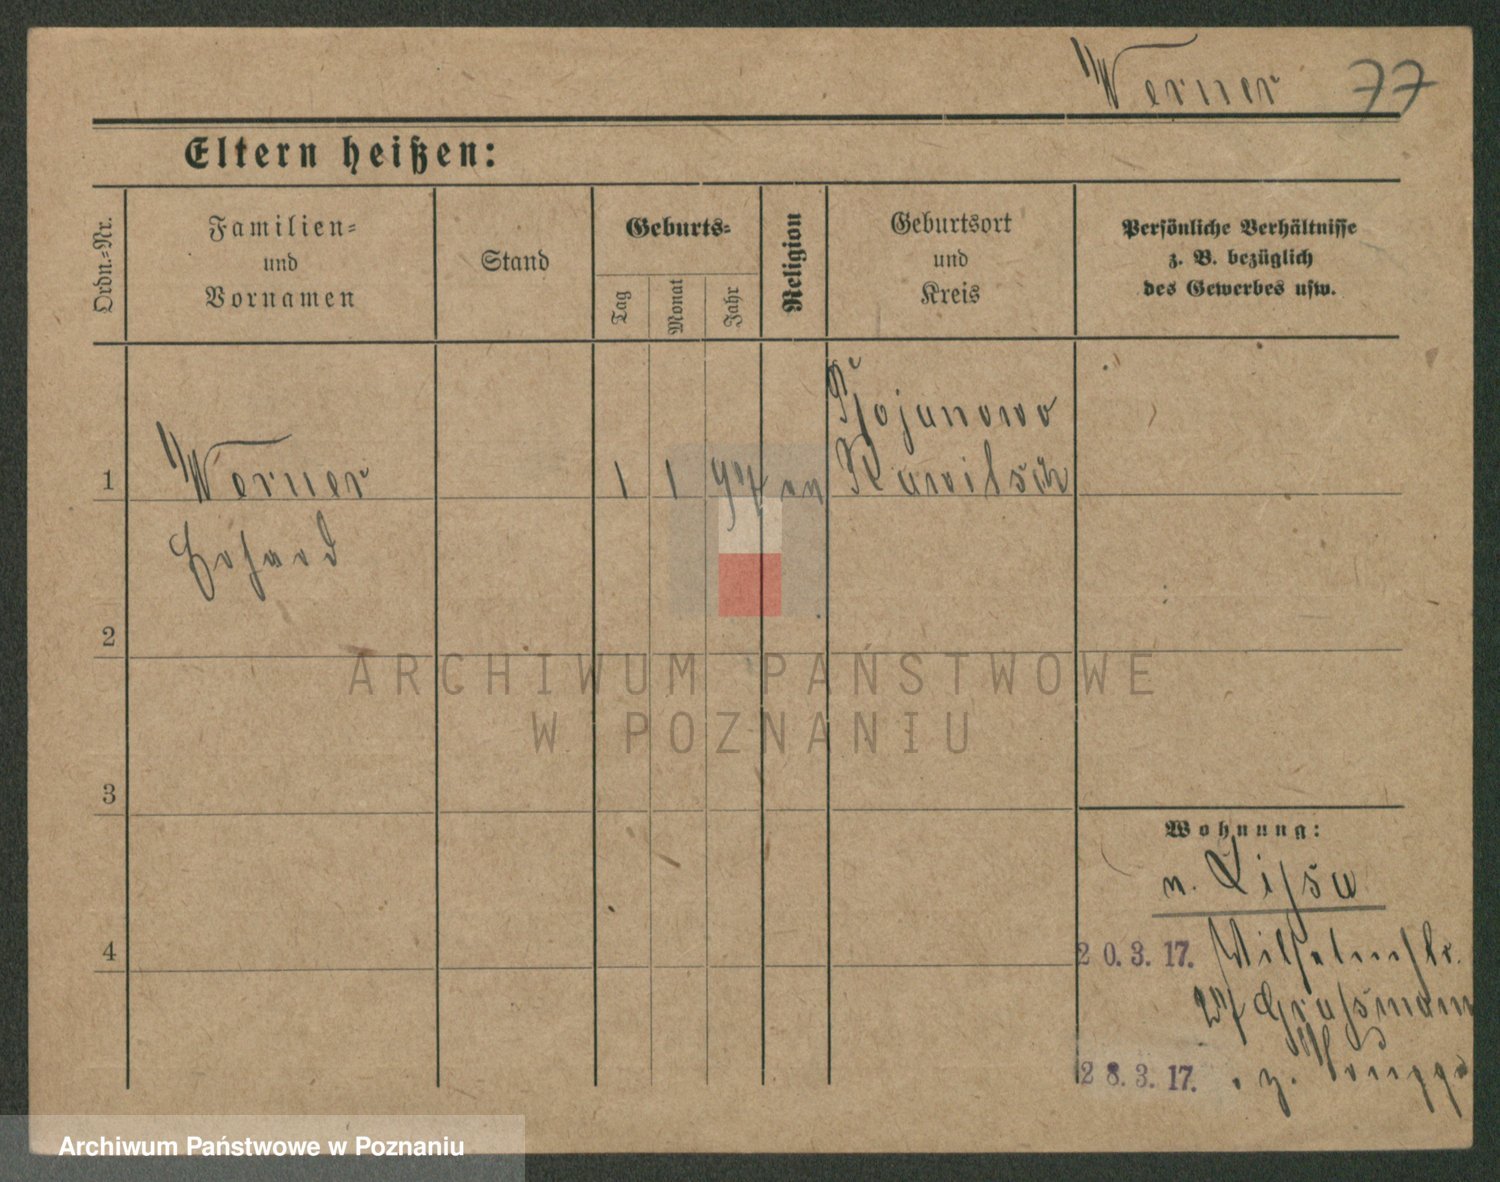 Werner 77
Eltern heißen:
Ordn.-Nr.
Familien-
und
Vornamen
Stand
Geburts-
Tag
Monat
Jahr
Religion
Geburtsort
und
Kreis
Persönliche Verhältnisse
z. B. bezüglich
des Gewerbes usw.
Bojanowo
1 Werner 1 1 97 ev Rawitsch
Erhard
2
3
4
Wohnung:
n. Lissa
20.3.17. Wilhelmstr.
27 Grassmann
28.3.17. z.
ARCHIWUM PAŃSTWOWE
W POZNANIU
Archiwum Państwowe w Poznaniu